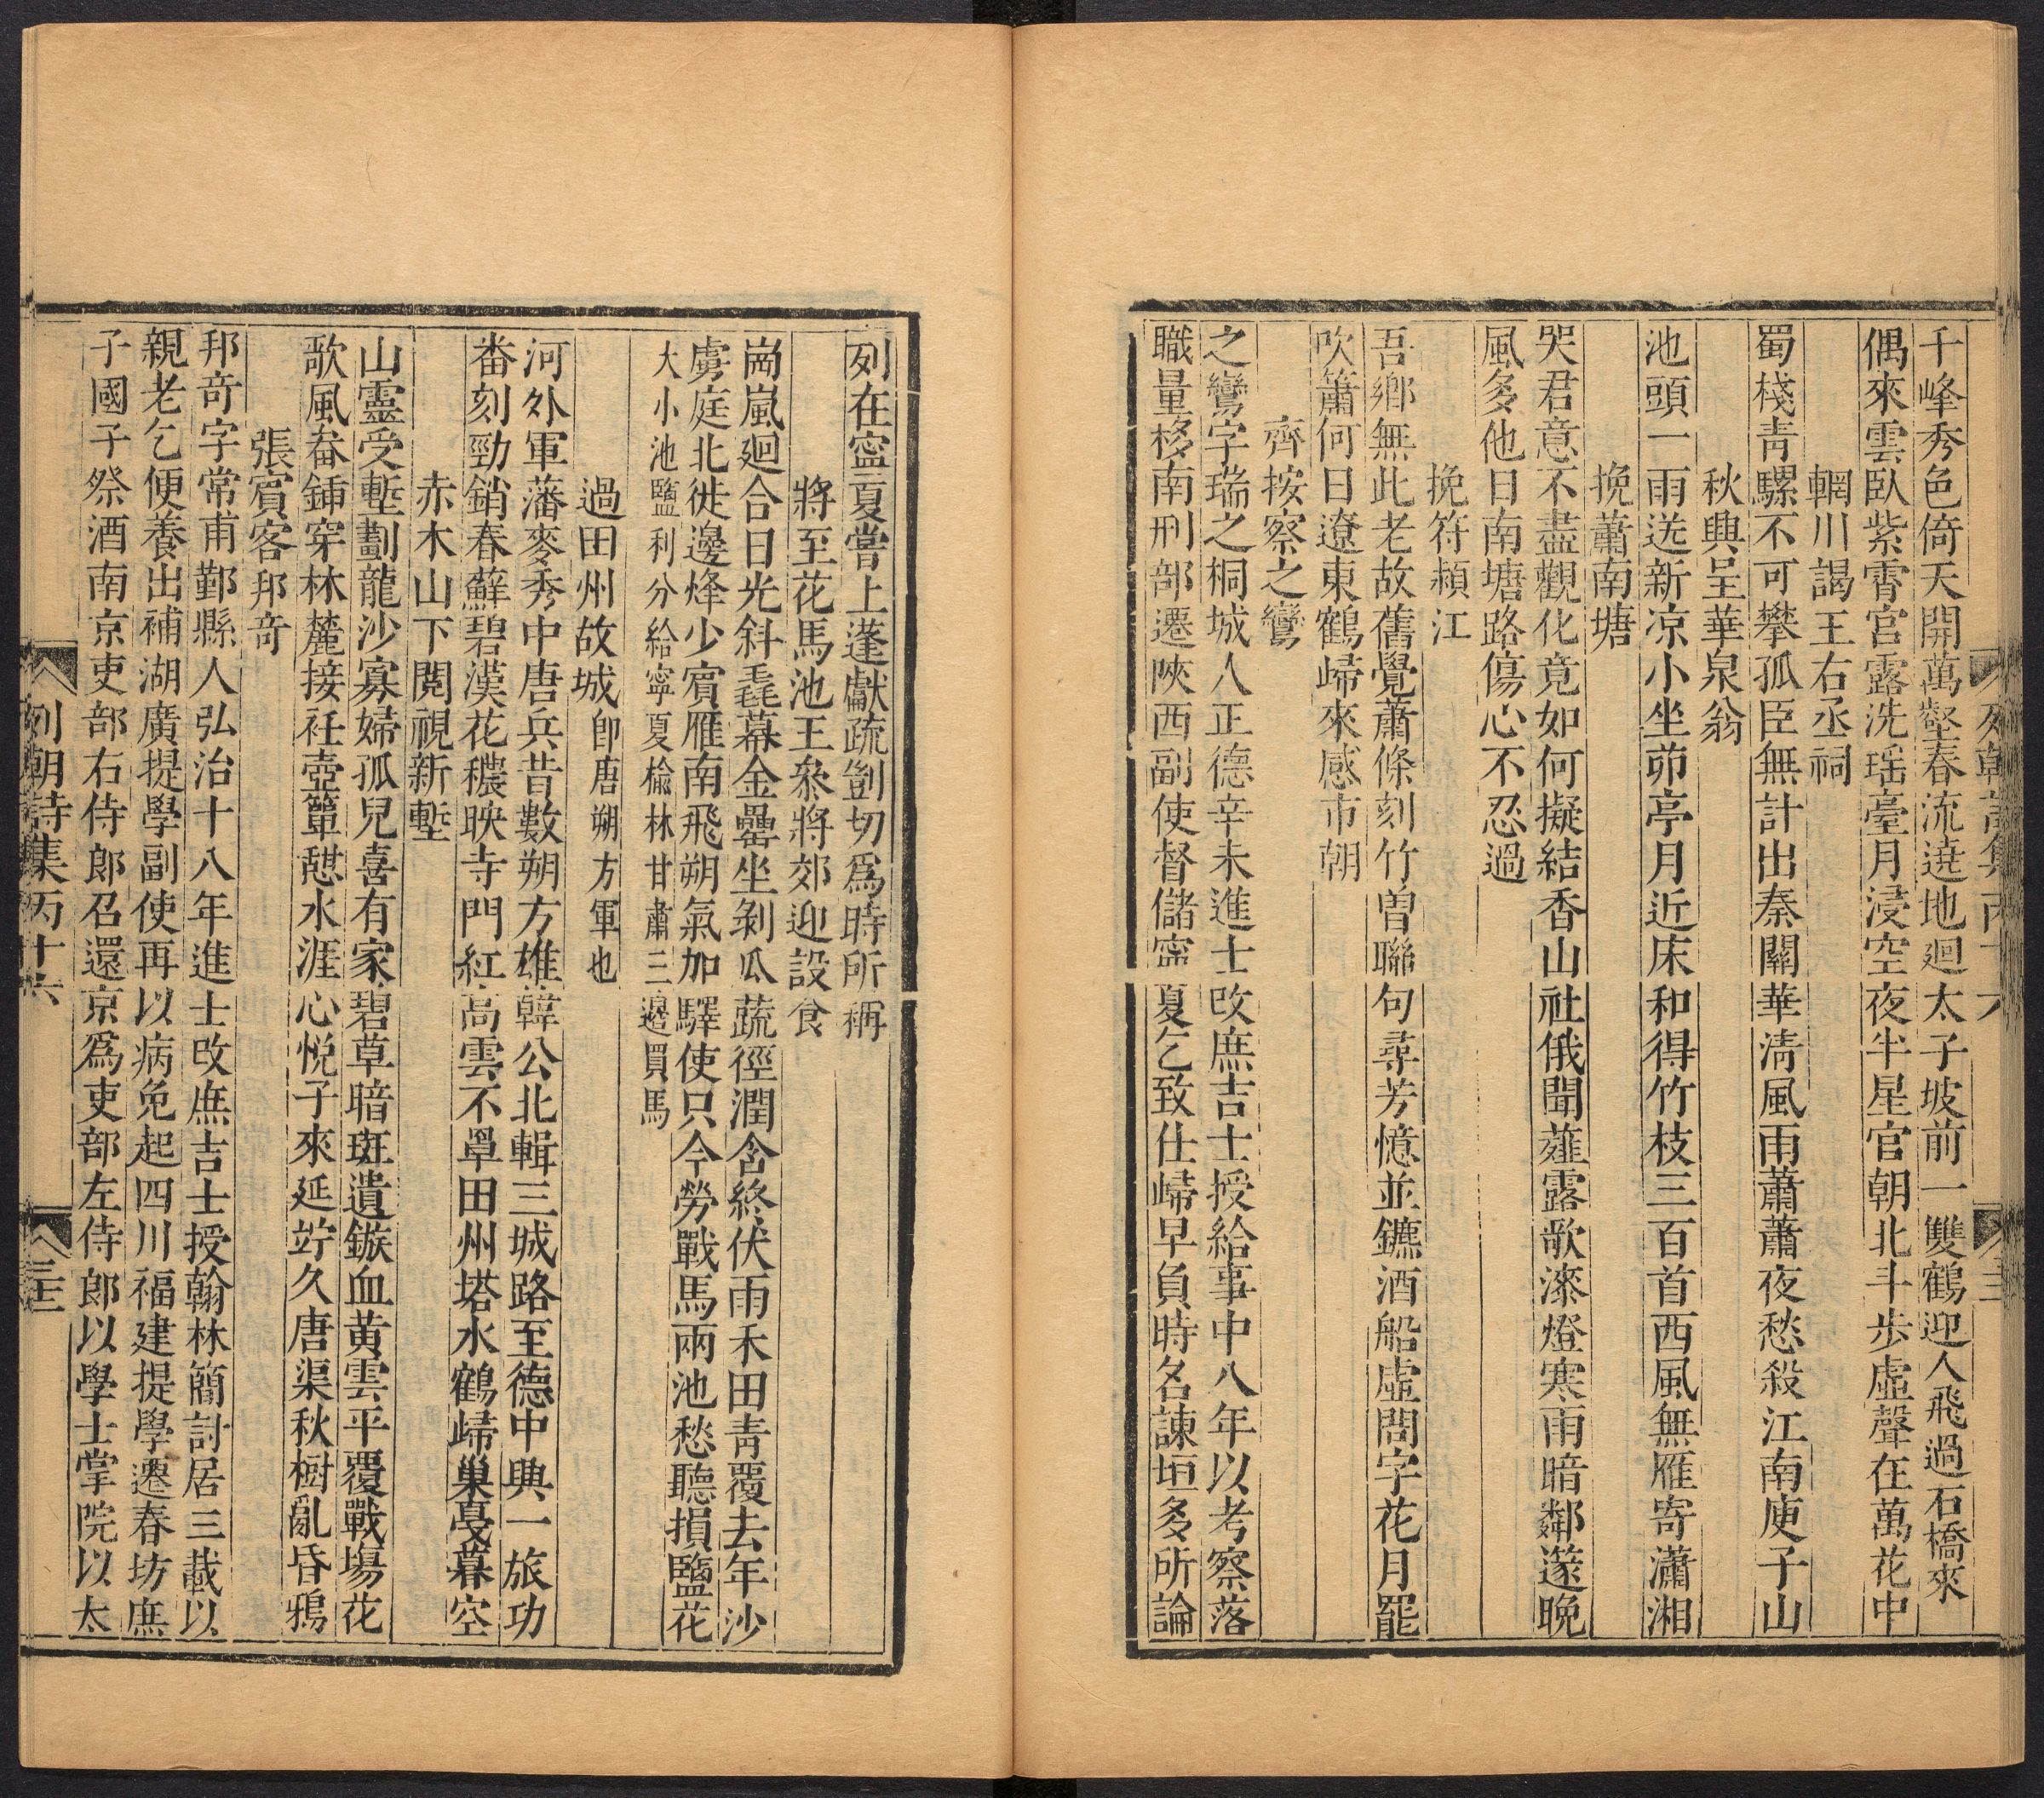 千峰秀色倚天開萬壑春流遶地廻太子坡前一雙鶴迎人飛過石橋來
偶來雲臥紫霄宮露洗瑤臺月浸空夜半星官朝北斗步虛聲在萬花中
輞川謁王右丞祠
蜀棧靑騾不可攀孤臣無計出秦關華淸風雨蕭蕭夜愁殺江南庾子山
秋興呈華泉翁
池頭一雨送新凉小坐茆亭月近床和得竹枝三百首西風無雁寄瀟湘
挽蕭南塘
哭君意不盡觀化竟如何擬結香山社俄聞薤露歌漆燈寒雨暗鄰蓫晚
風多他日南塘路傷心不忍過
挽符頻江
吾鄉無此老故舊覺蕭條刻竹曽聯句尋芳憶並鑣酒船虛問字花月罷
吹簫何日遼東鶴歸來感市朝
齊按察之鸞
之鸞字瑞之桐城人正德辛未進士改庶吉士授給事中八年以考察落
職量移南刑部遷陝西副使督儲寧夏乞致仕歸早負時名諫垣多所論
列在寧夏嘗上蓬獻疏剴切爲時所稱
將至花馬池王叅將郊迎設食
崗嵐廻合日光斜毳幕金罍坐剝瓜蔬徑潤含終伏雨禾田靑覆去年沙
虜庭北徙邊烽少賓雁南飛朔氣加驛使只今勞戰馬兩池愁聽損鹽花
大小池鹽利分給寧夏楡林甘肅三邊買馬
過田州故城卽唐朔方軍也
河外軍藩麥秀中唐兵昔數朔方雄韓公北輯三城路至德中興一旅功
畨刻勁銷春蘚碧漢花穠映寺門紅高雲不㫿田州塔水鶴歸巢戞暮空
赤木山下閱視新塹
山靈受塹劃龍沙寡婦孤兒喜有家碧草暗斑遺鏃血黄雲平覆戰塲花
歌風畚鍤穿林麓接衽壺簞憇水涯心悦子來延竚久唐渠秋樹亂昏鴉
張賓客邦奇
邦奇字常甫鄞縣人弘治十八年進士改庶吉士授翰林簡討居三載以
親老乞便養出補湖廣提學副使再以病免起四川福建提學遷春坊庶
子國子祭酒南京吏部右侍郎召還京爲吏部左侍郎以學士掌院以太
列朝詩集丙十六